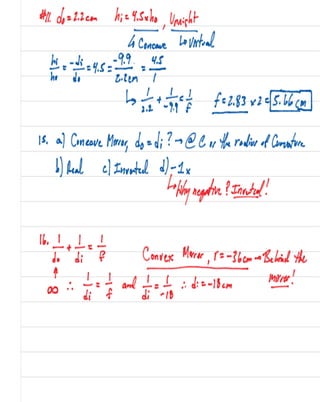 #11. do=2.2cm hi=4.5xho, Upright
↳ Concave ↳ Virtual
hi/ho = -di/do = 4.5 = -9.9/2.2cm = 4.5/1
↳ 1/2.2 + 1/-9.9 = 1/f f=2.83 x2 = 5.66cm
15. a) Concave Mirror, do=di? → @ C or the radius of Curvature
b) Real c) Inverted d) -1x
↳ Why negative? Inverted!
16. 1/do + 1/di = 1/f
Convex Mirror, r=-36cm → Behind the mirror!
↑
∞ ∴ 1/di = 1/f and 1/di = 1/-18 ∴ di=-18cm